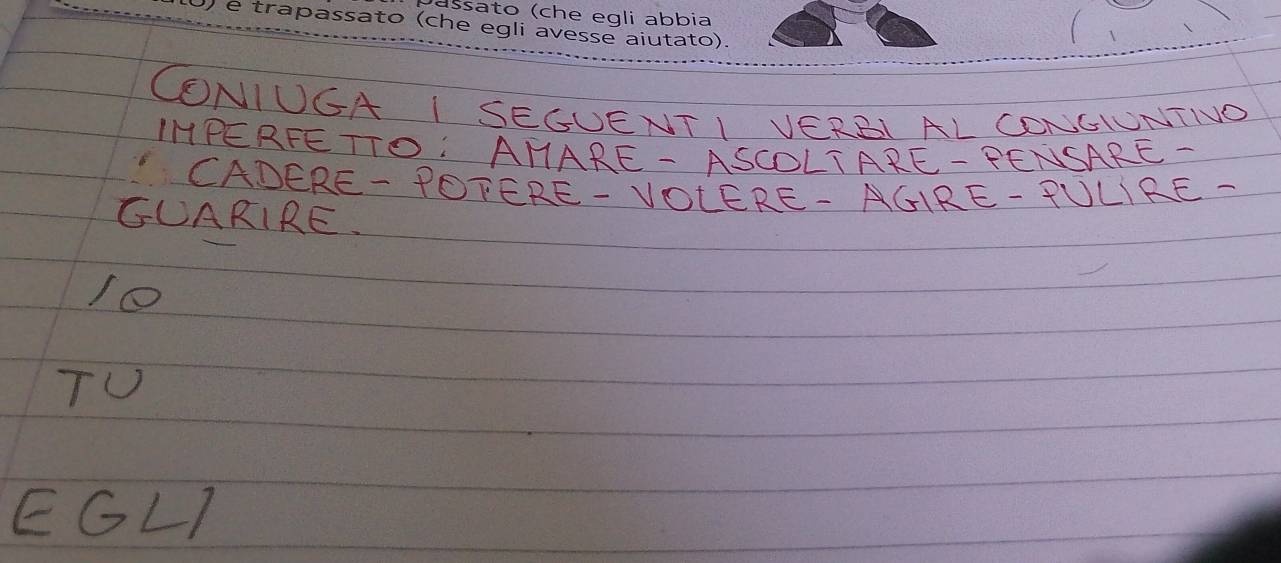 e trapassato (che egli avesse aiutato).
passato (che egli abbia
CONIUGA I SEGUENTI VERBI AL CONGIUNTIVO
IMPERFETTO: AMARE - ASCOLTARE - PENSARE -
CADERE - POTERE - VOLERE - AGIRE - PULIRE -
GUARIRE.
IO
TU
EGLI